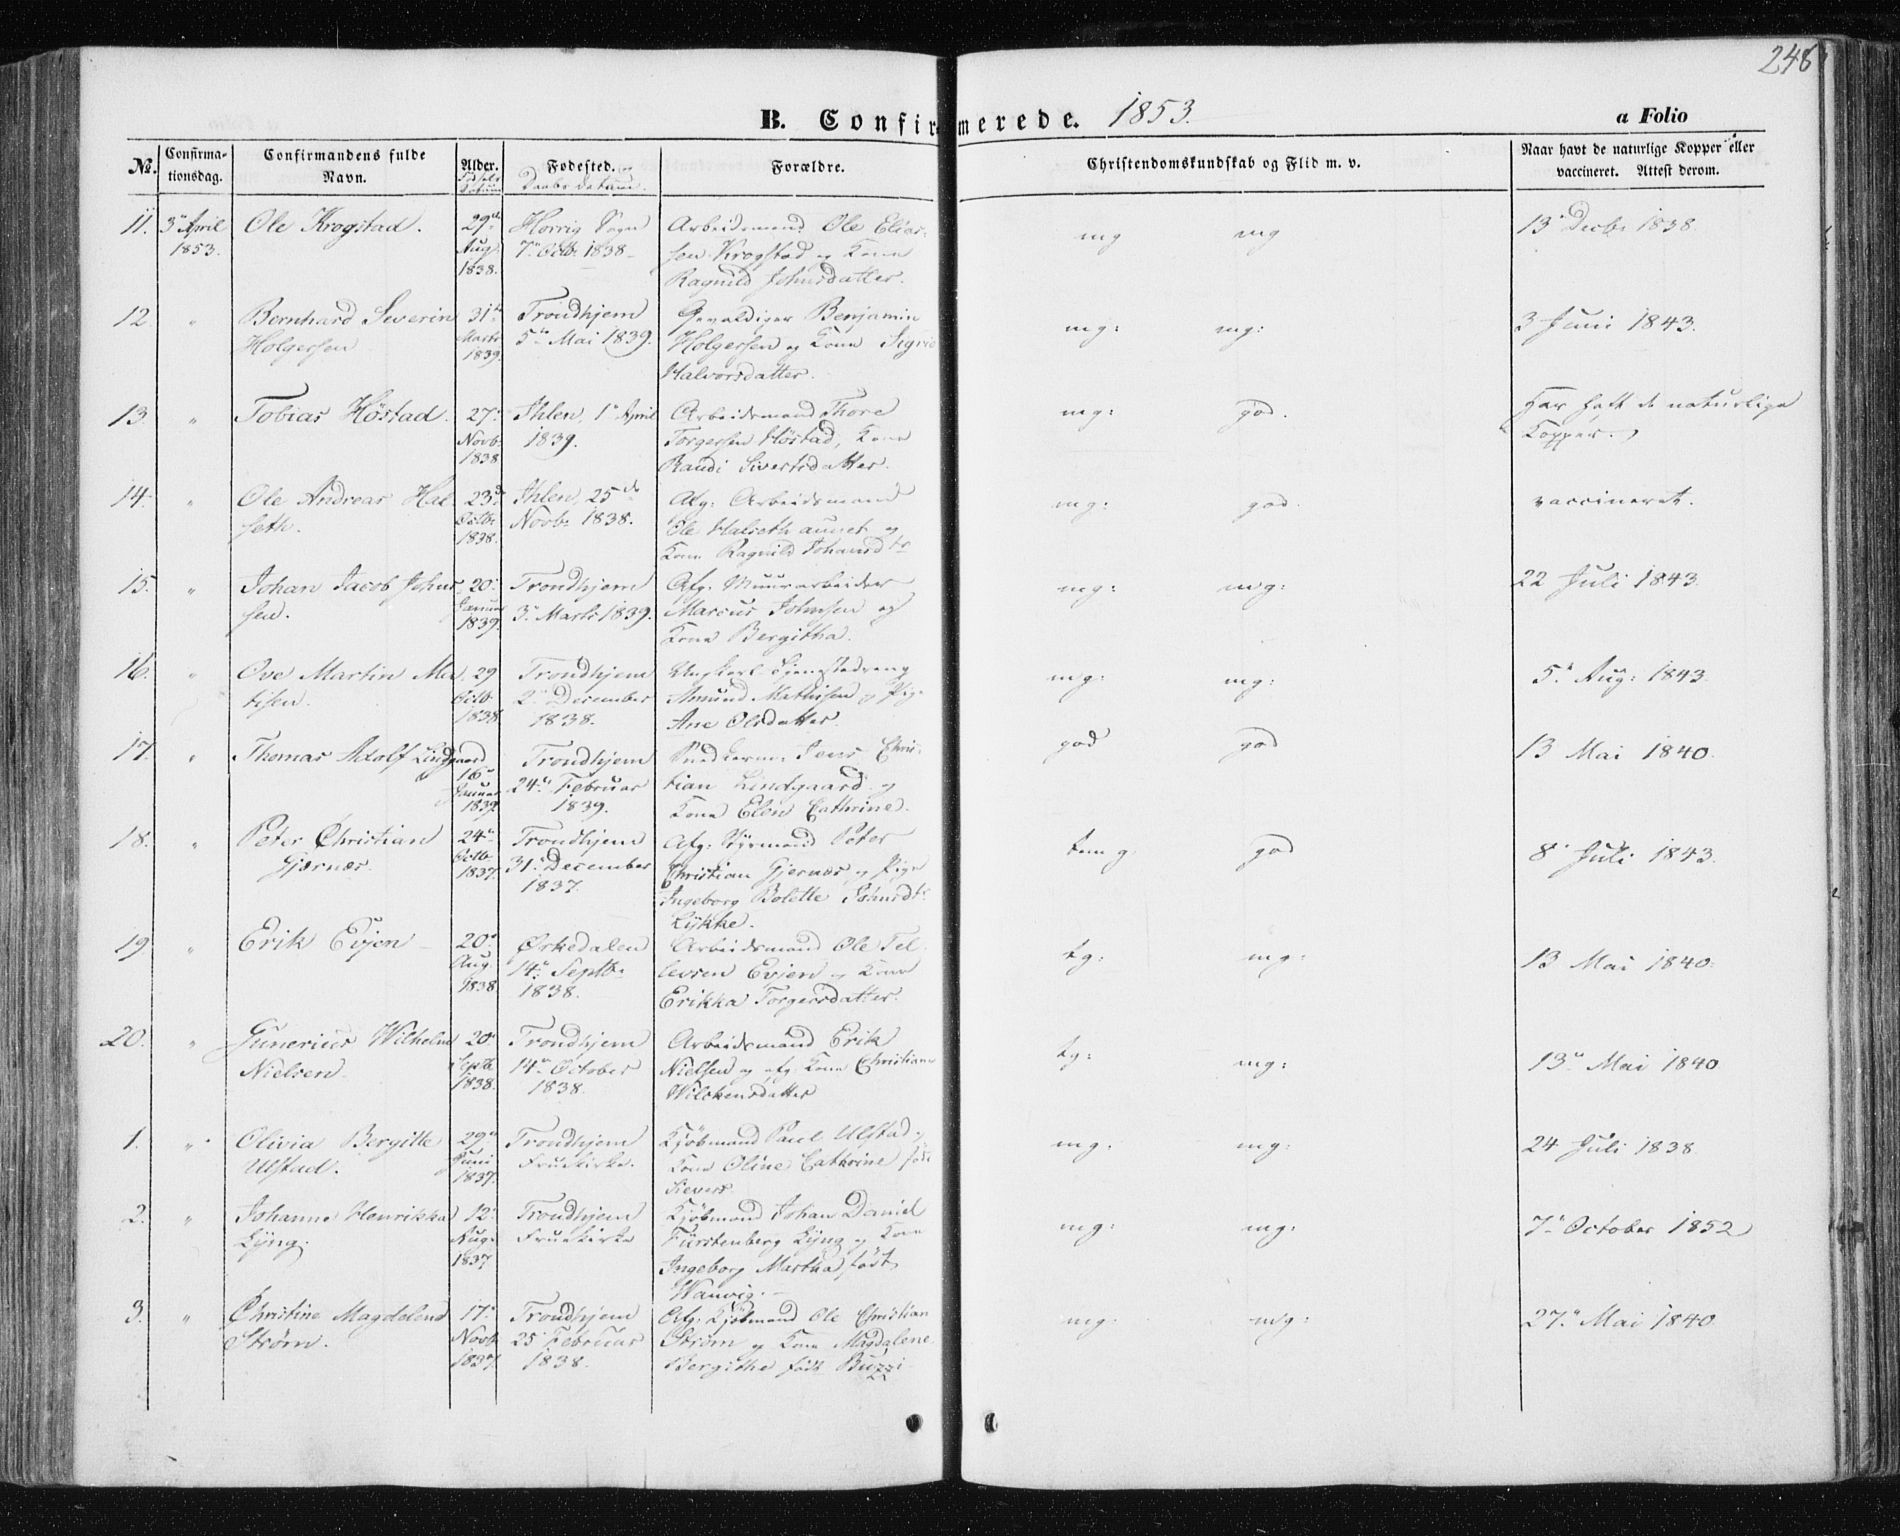 248
B. Confirmerede. 1853.
a Folio
No.
Confirma-
tionsdag.
Confirmandens fulde
Navn.
Alder.
Fødsels
Datum
Fødested. og
Daabsdatum.
Forældre.
Christendomskundskab og Flid m. v.
Naar havt de naturlige Kopper eller
vaccineret. Attest derom.
11. 3' April Ole Krogstad. 29de Horrig Sogn Arbeidsmand Ole Elias- mg mg 13' Decbr 1838.
1853. Aug. 7' Octb. 1838 sen Krogstad og Kone
1838. Ragnild Johnsdatter.
12 " Bernhard Severin 31te Trondhjem Gevaldiger Benjamin mg: mg: 3 Juni 1843.
Holgersen Marts 5te Mai 1839. Holgersen og Kone Sigrid
1839. Halvorsdatter.
13. " Tobias Höstad. 27' Ihlen, 1' April Arbeidsmand Thore mg: god. Har haft de naturlige
Novb. 1839. Torgersen Höstad, Kone Kopper.
1838 Randi Sivertsdatter.
14. " Ole Andreas Hal- 23de Ihlen, 25de Afg: Arbeidsmand mg: god. vaccineret.
seth. Octb. Novb: 1838. Ole Halsethaunet og
1838. Kone Ragnild Johansdtr
15. " Johan Jacob Johns- 20' Trondhjem Afg: Muurarbeider mg: mg: 22 Juli 1843
sen. Januar 3' Marts 1839. Marcus Johnsen og
1839. Kone Bergitha.
16. " Ove Martin Ma- 29 Trondhjem Ungkarl Tjenestedreng mg: mg: 5' Aug: 1843.
tisen. Octb. 2' December Amund Mathisen og Pige
1838. 1838. Ane Olsdatter.
17. " Thomas Adolf Lindgaard Trondhjem Jens Chris- god god 13 Mai 1840.
16' 24' Februar tian Lindgaard og
Januar 1839. Kone Elen Cathrine.
1839.
18. " Peter Christian 24' Trondhjem Afg: Styrmand Peter temg. god 8' Juli 1843.
Gjærnæs. Octb. 31' December Christian Gjernæs og Pige
1837. 1837. Ingeborg Bolette Johnsdtr
Lykke.
19 " Erik Evjen 20' Ørkedalen Arbeidsmand Ole Tel- tg: mg: 13 Mai 1840.
Aug. 14' Septbr levsen Evjen og Kone
1838 1838. Erikka Torgersdatter.
20. " Gunerius Wilhelm 20' Trondhjem Arbeidsmand Erik tg: mg: 13' Mai 1840
Nielsen. Septb. 14' October Nielsen og afg. Kone Christiane
1838. 1838. Wilckensdatter
1. " Olivia Bergitte 29' Trondhjem Kjöbmand Paul Ulstad og mg. mg: 24 Juli 1838
Ulstad. Juni Fruekirke. Kone Oline Cathrine född
1837. Sievers
2. " Johanne Henrikka 12' Trondhjem Kjöbmand Johan Daniel mg: mg: 7' October 1852
Lÿng. Aug. Fruekirke Fürstenberg Lÿng og Kone
1837 Ingeborg Martha, födt
Wanvig.
3. " Christine Magdelene 17' Trondhjem Afg: Kjöbmand Ole Christian mg. mg: 27' Mai 1840
Strøm. Novb. 25' Februar Strøm og Kone Magdalene
1837. 1838. Bergithe född Buzzi